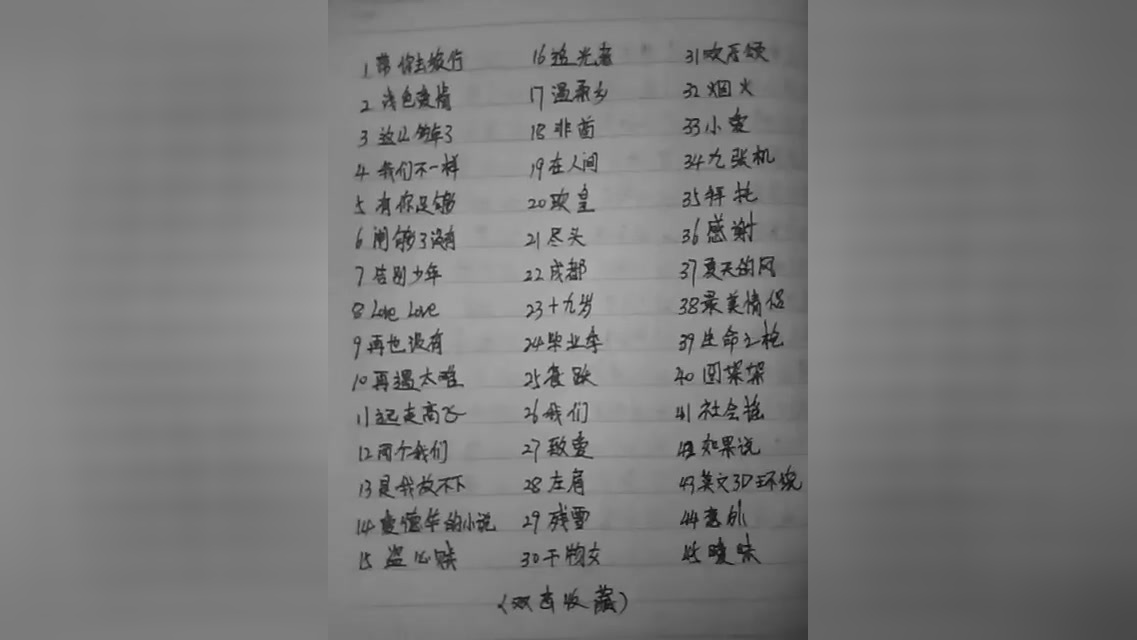 1 带你去旅行
2 浅色爱情
3 这么多年了
4 我们不一样
5 有你足够
6 闹够了没有
7 告别少年
8 Love Love
9 再也没有
10 再遇太难
11 远走高飞
12 两个我们
13 是我放不下
14 爱德华的小说
15 盗心贼
16 追光者
17 温柔乡
18 非酋
19 在人间
20 欧皇
21 尽头
22 成都
23 十九岁
24 毕业季
25 夜跃
26 我们
27 致爱
28 左肩
29 残雪
30 干物女
31 欢乐颂
32 烟火
33 小爱
34 九张机
35 拜托
36 感谢
37 夏天的风
38 最美情侣
39 生命之枪
40 回某某
41 社会摇
42 如果说
43 英文3D环绕
44 意外
45 暧昧
(双击收藏)